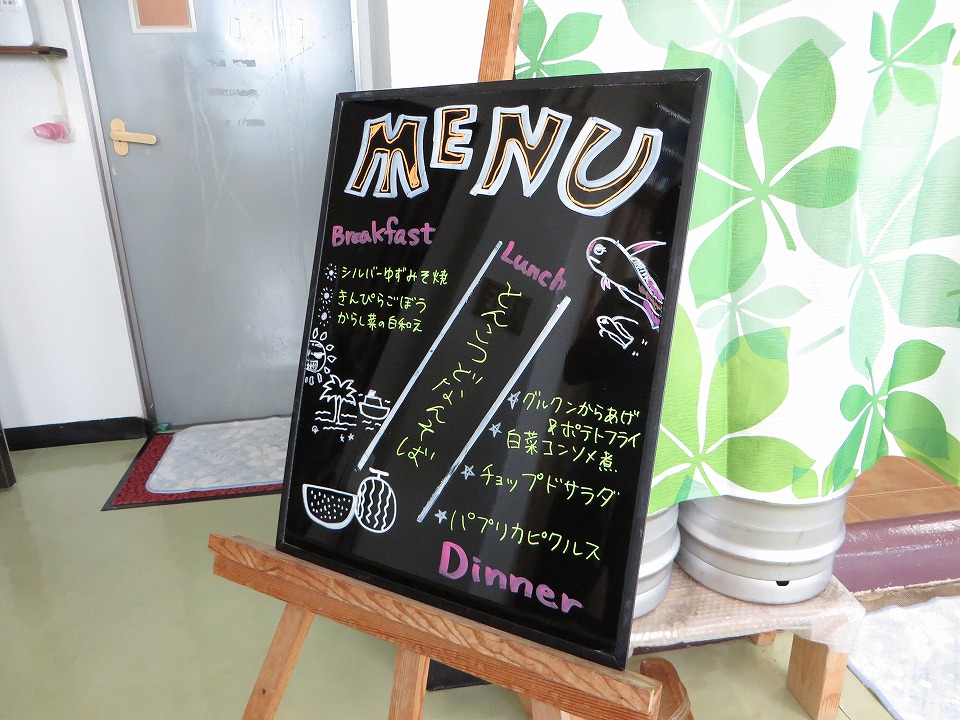 MENU
Breakfast
シルバーゆずみそ焼
きんぴらごぼう
からし菜の白和え
Lunch
とんこつどよんそば
グルクンからあげ
&ポテトフライ
白菜コンソメ煮
チョップドサラダ
パプリカピクルス
Dinner